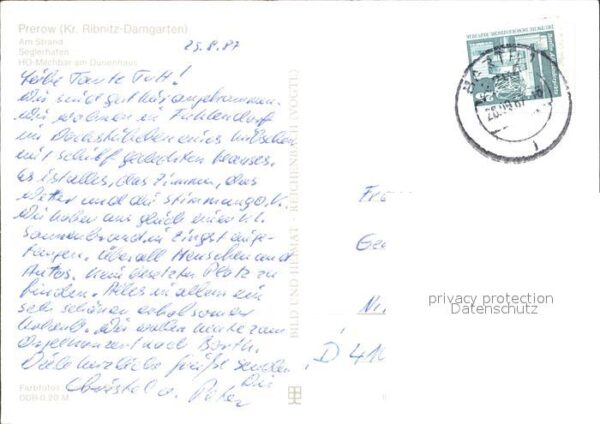 Prerow (Kr. Ribnitz-Damgarten)
Am Strand
Seglerhafen
HO-Milchbar am Dünenhaus
25.8.87
Liebe Tante Tutt!
Wir sind gut hier angekommen.
Wir wohnen in Fuhlendorf
im Dachstübchen eines hübschen
mit Schilf gedeckten Hauses.
Es ist alles, das Zimmer, das
Wetter und die Stimmung O.K.
Wir haben uns gleich einen kl.
Sonnenbrand in Zingst einge-
fangen. Überall Menschen und
Autos. Kein besetzten Platz zu
finden. Alles in allem ein
sehr schöner erholsamer
Urlaub. Wir wollen heute zum
Orgelkonzert nach Barth.
Viele herzliche Grüße senden
Dir
Christel u. Peter
Farbfotos
DDR 0,20 M
BILD UND HEIMAT REICHENBACH (VOGTL)
DEUTSCHE DEMOKRATISCHE REPUBLIK
25
Fr
Ge
Nr.
D 41
privacy protection
Datenschutz